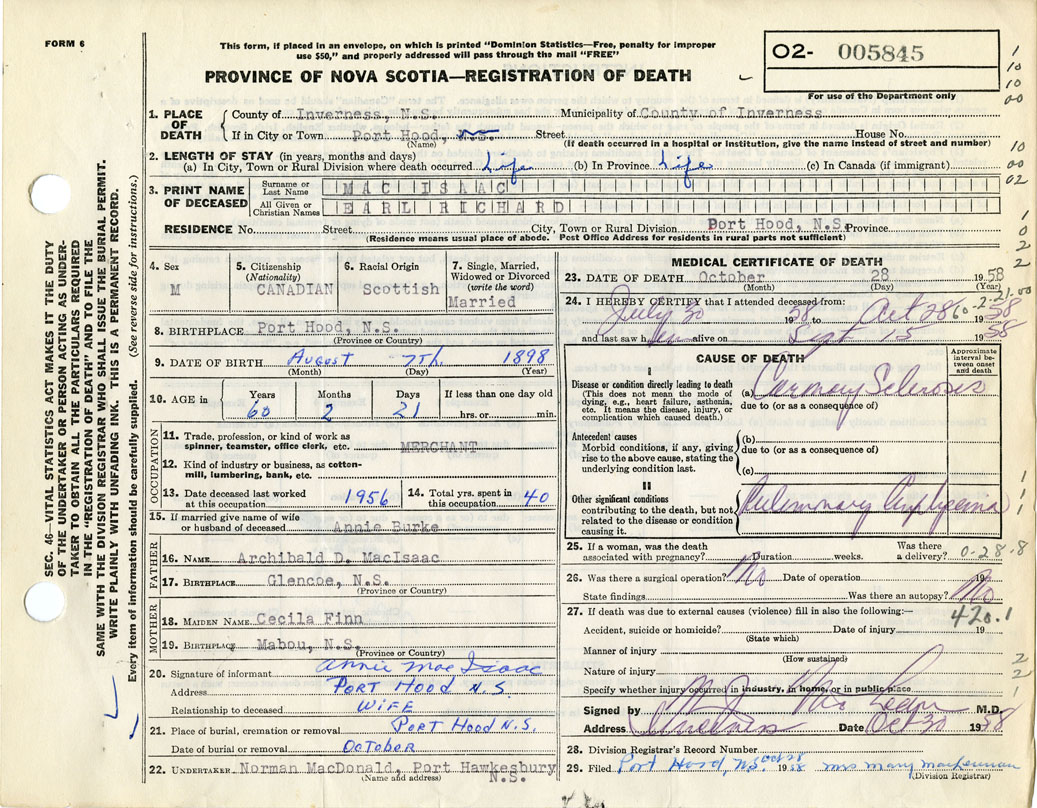 FORM 6
This form, if placed in an envelope, on which is printed "Dominion Statistics—Free, penalty for improper
use $50," and properly addressed will pass through the mail "FREE"
O2- 005845
For use of the Department only
PROVINCE OF NOVA SCOTIA—REGISTRATION OF DEATH
1. PLACE OF DEATH
County of Inverness, N.S. Municipality of County of Inverness
If in City or Town Port Hood, Street House No.
(Name) (If death occurred in a hospital or institution, give the name instead of street and number)
2. LENGTH OF STAY (in years, months and days)
(a) In City, Town or Rural Division where death occurred Life (b) In Province Life (c) In Canada (if immigrant)
3. PRINT NAME OF DECEASED
Surname or Last Name MAC ISAAC
All Given or Christian Names EARL RICHARD
RESIDENCE No. Street City, Town or Rural Division Port Hood, N.S. Province
(Residence means usual place of abode. Post Office Address for residents in rural parts not sufficient)
4. Sex M
5. Citizenship (Nationality) CANADIAN
6. Racial Origin Scottish
7. Single, Married, Widowed or Divorced (write the word) Married
8. BIRTHPLACE Port Hood, N.S.
(Province or Country)
9. DATE OF BIRTH August 7th. 1898
(Month) (Day) (Year)
10. AGE in Years 60 Months 2 Days 21 If less than one day old hrs. or min.
OCCUPATION
11. Trade, profession, or kind of work as
spinner, teamster, office clerk, etc. MERCHANT
12. Kind of industry or business, as cotton-
mill, lumbering, bank, etc.
13. Date deceased last worked at this occupation 1956
14. Total yrs. spent in this occupation 40
15. If married give name of wife
or husband of deceased Annie Burke
FATHER
16. NAME Archibald D. MacIsaac
17. BIRTHPLACE Glencoe, N.S.
(Province or Country)
MOTHER
18. MAIDEN NAME Cecila Finn
19. BIRTHPLACE Mabou, N.S.
(Province or Country)
20. Signature of informant Annie Mac Isaac
Address PORT HOOD N.S.
Relationship to deceased WIFE
21. Place of burial, cremation or removal PORT HOOD N.S.
Date of burial or removal OCTOBER
22. UNDERTAKER Norman MacDonald, Port Hawkesbury
N.S.
(Name and address)
MEDICAL CERTIFICATE OF DEATH
23. DATE OF DEATH October 28 1958
(Month) (Day) (Year)
24. I HEREBY CERTIFY that I attended deceased from:
July 30 1958 to Oct 28 1958
60-2-21.00
and last saw him alive on Sept 15 1958
CAUSE OF DEATH
Approximate interval between onset and death
I
Disease or condition directly leading to death
(This does not mean the mode of
dying, e.g., heart failure, asthenia,
etc. It means the disease, injury, or
complication which caused death.)
(a) Coronary Sclerosis
due to (or as a consequence of)
Antecedent causes
Morbid conditions, if any, giving
rise to the above cause, stating the
underlying condition last.
(b)
due to (or as a consequence of)
(c)
II
Other significant conditions
contributing to the death, but not
related to the disease or condition
causing it.
Pulmonary Emphysema
25. If a woman, was the death Was there
associated with pregnancy? Duration weeks. a delivery? 0-28.8
26. Was there a surgical operation? No Date of operation 19
State findings Was there an autopsy? No
27. If death was due to external causes (violence) fill in also the following:—
420.1
Accident, suicide or homicide? Date of injury 19
(State which)
Manner of injury
(How sustained)
Nature of injury
Specify whether injury occurred in industry, in home, or in public place
Signed by M.D.
Address Date Oct 30 1958
28. Division Registrar's Record Number
29. Filed Port Hood, N.S. Oct 28 1958 Mrs Mary MacLennan
(Division Registrar)
SEC. 46—VITAL STATISTICS ACT MAKES IT THE DUTY
OF THE UNDERTAKER OR PERSON ACTING AS UNDER-
TAKER TO OBTAIN ALL THE PARTICULARS REQUIRED
IN THE "REGISTRATION OF DEATH" AND TO FILE THE
SAME WITH THE DIVISION REGISTRAR WHO SHALL ISSUE THE BURIAL PERMIT.
WRITE PLAINLY WITH UNFADING INK. THIS IS A PERMANENT RECORD.
Every item of information should be carefully supplied. (See reverse side for instructions.)
1
10
10
00
10
00
02
1
0
2
2
1
1
1
2
2
1